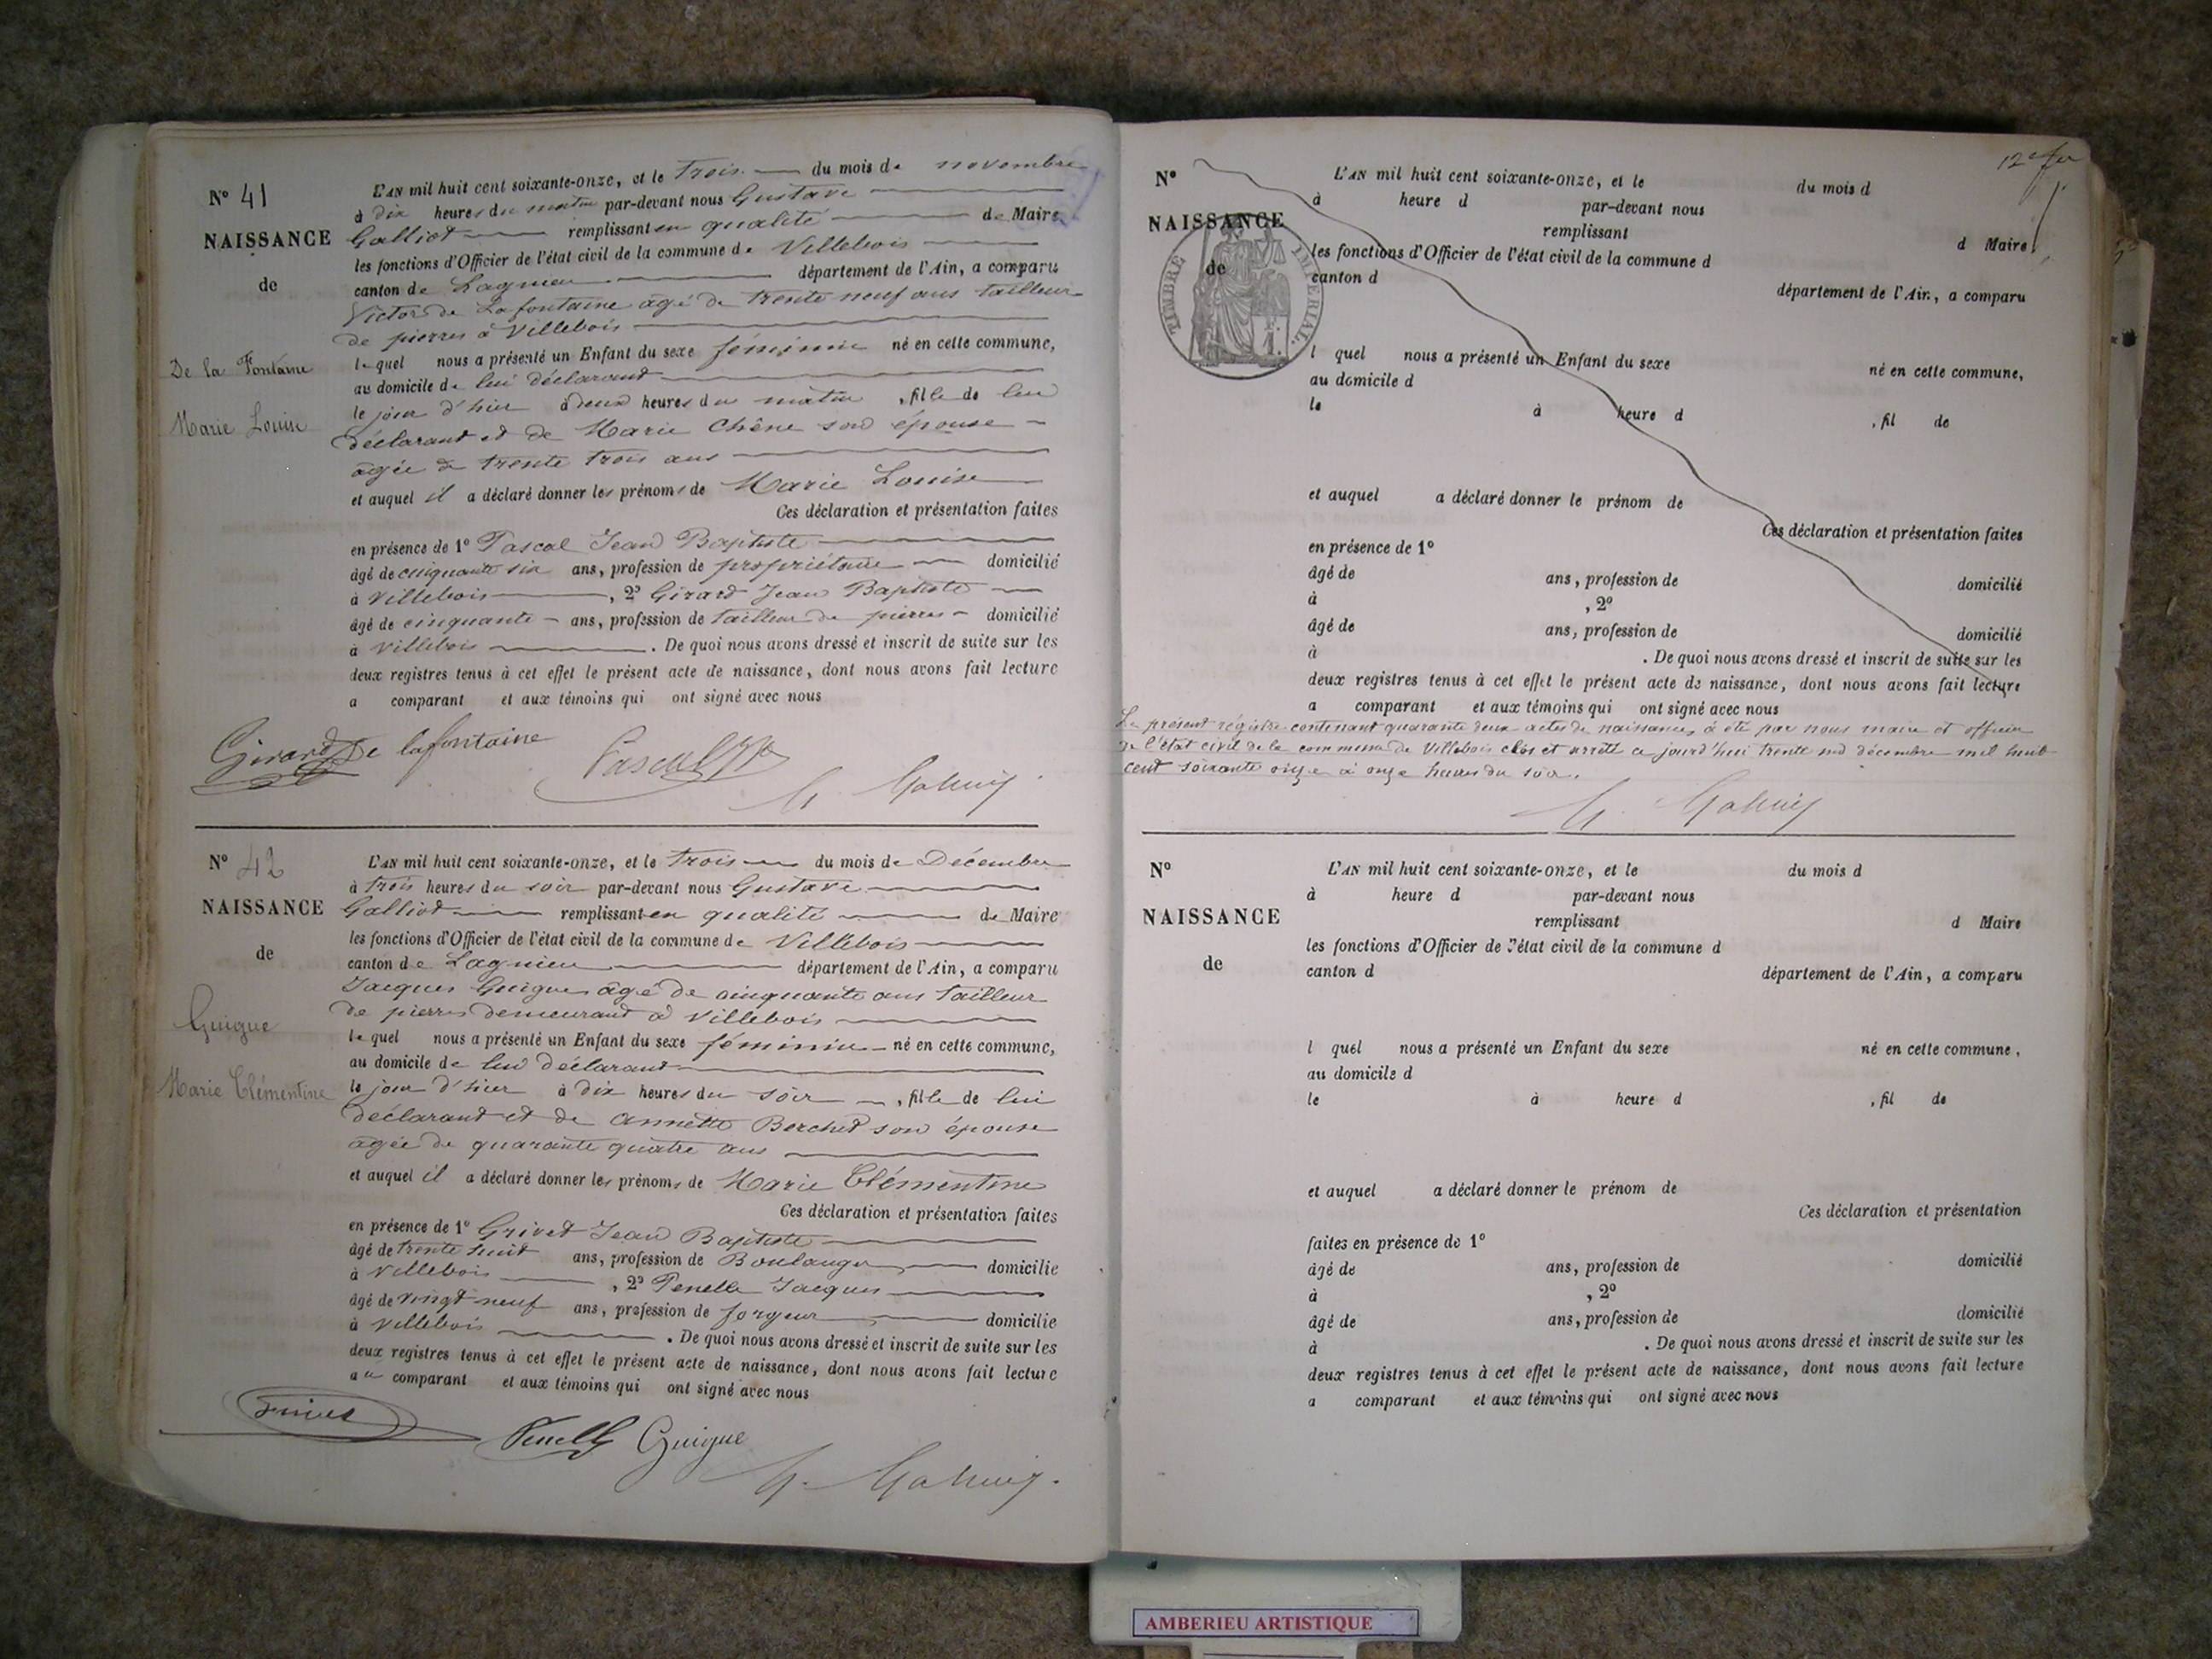 N° 41
NAISSANCE
de
De la Fontaine
Marie Louise
L'AN mil huit cent soixante-onze, et le Trois du mois de novembre
à dix heures du matin par-devant nous Gustave
Galliot remplissant en qualité de Maire
les fonctions d'Officier de l'état civil de la commune de Villebois
canton de Lagnieu département de l'Ain, a comparu
Victor de Lafontaine âgé de trente neuf ans tailleur
de pierres à Villebois
lequel nous a présenté un Enfant du sexe féminin né en cette commune,
au domicile de lui déclarant
le jour d'hier à deux heures du matin , fille de lui
déclarant et de Marie Chêne son épouse
âgée de trente trois ans
et auquel il a déclaré donner les prénoms de Marie Louise
Ces déclaration et présentation faites
en présence de 1° Pascal Jean Baptiste
âgé de cinquante six ans, profession de propriétaire domicilié
à Villebois , 2° Girard Jean Baptiste
âgé de cinquante ans, profession de tailleur de pierres domicilié
à Villebois . De quoi nous avons dressé et inscrit de suite sur les
deux registres tenus à cet effet le présent acte de naissance, dont nous avons fait lecture
a comparant et aux témoins qui ont signé avec nous
Girard De lafontaine Pascal
N° 42
NAISSANCE
de
Guigue
Marie Clémentine
L'AN mil huit cent soixante-onze, et le trois du mois de Décembre
à trois heures du soir par-devant nous Gustave
Galliot remplissant en qualité de Maire
les fonctions d'Officier de l'état civil de la commune de Villebois
canton de Lagnieu département de l'Ain, a comparu
Jacques Guigue âgé de cinquante ans tailleur
de pierres demeurant à Villebois
lequel nous a présenté un Enfant du sexe féminin né en cette commune,
au domicile de lui déclarant
le jour d'hier à dix heures du soir , fille de lui
déclarant et de Annette Berchet son épouse
âgée de quarante quatre ans
et auquel il a déclaré donner les prénoms de Marie Clémentine
Ces déclaration et présentation faites
en présence de 1° Grivet Jean Baptiste
âgé de trente huit ans, profession de Boulanger domicilié
à Villebois , 2° Penelle Jacques
âgé de vingt neuf ans, profession de forgeur domicilié
à Villebois . De quoi nous avons dressé et inscrit de suite sur les
deux registres tenus à cet effet le présent acte de naissance, dont nous avons fait lecture
au comparant et aux témoins qui ont signé avec nous
Grivet Guigue
N°
NAISSANCE
de
TIMBRE IMPERIAL.
L'AN mil huit cent soixante-onze, et le du mois d
à heure d par-devant nous
remplissant d Maire
les fonctions d'Officier de l'état civil de la commune d
canton d département de l'Ain, a comparu
l quel nous a présenté un Enfant du sexe né en cette commune,
au domicile d
le à heure d , fil de
et auquel a déclaré donner le prénom de
Ces déclaration et présentation faites
en présence de 1°
âgé de ans, profession de domicilié
à , 2°
âgé de ans, profession de domicilié
à . De quoi nous avons dressé et inscrit de suite sur les
deux registres tenus à cet effet le présent acte de naissance, dont nous avons fait lecture
a comparant et aux témoins qui ont signé avec nous
Le présent régistre contenant quarante deux actes de naissances, à été par nous maire et officier
de l'état civil de la commune de Villebois clos et arrêté ce jourd'hui trente un décembre mil huit
cent soixante onze à onze heures du soir.
N°
NAISSANCE
de
L'AN mil huit cent soixante-onze, et le du mois d
à heure d par-devant nous
remplissant d Maire
les fonctions d'Officier de l'état civil de la commune d
canton d département de l'Ain, a comparu
l quel nous a présenté un Enfant du sexe né en cette commune,
au domicile d
le à heure d , fil de
et auquel a déclaré donner le prénom de
Ces déclaration et présentation
faites en présence de 1°
âgé de ans, profession de domicilié
à , 2°
âgé de ans, profession de domicilié
à . De quoi nous avons dressé et inscrit de suite sur les
deux registres tenus à cet effet le présent acte de naissance, dont nous avons fait lecture
a comparant et aux témoins qui ont signé avec nous
AMBERIEU ARTISTIQUE